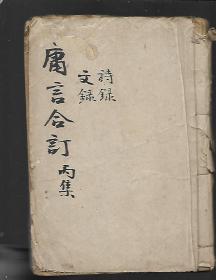 詩録
文録
庸言合訂
丙集